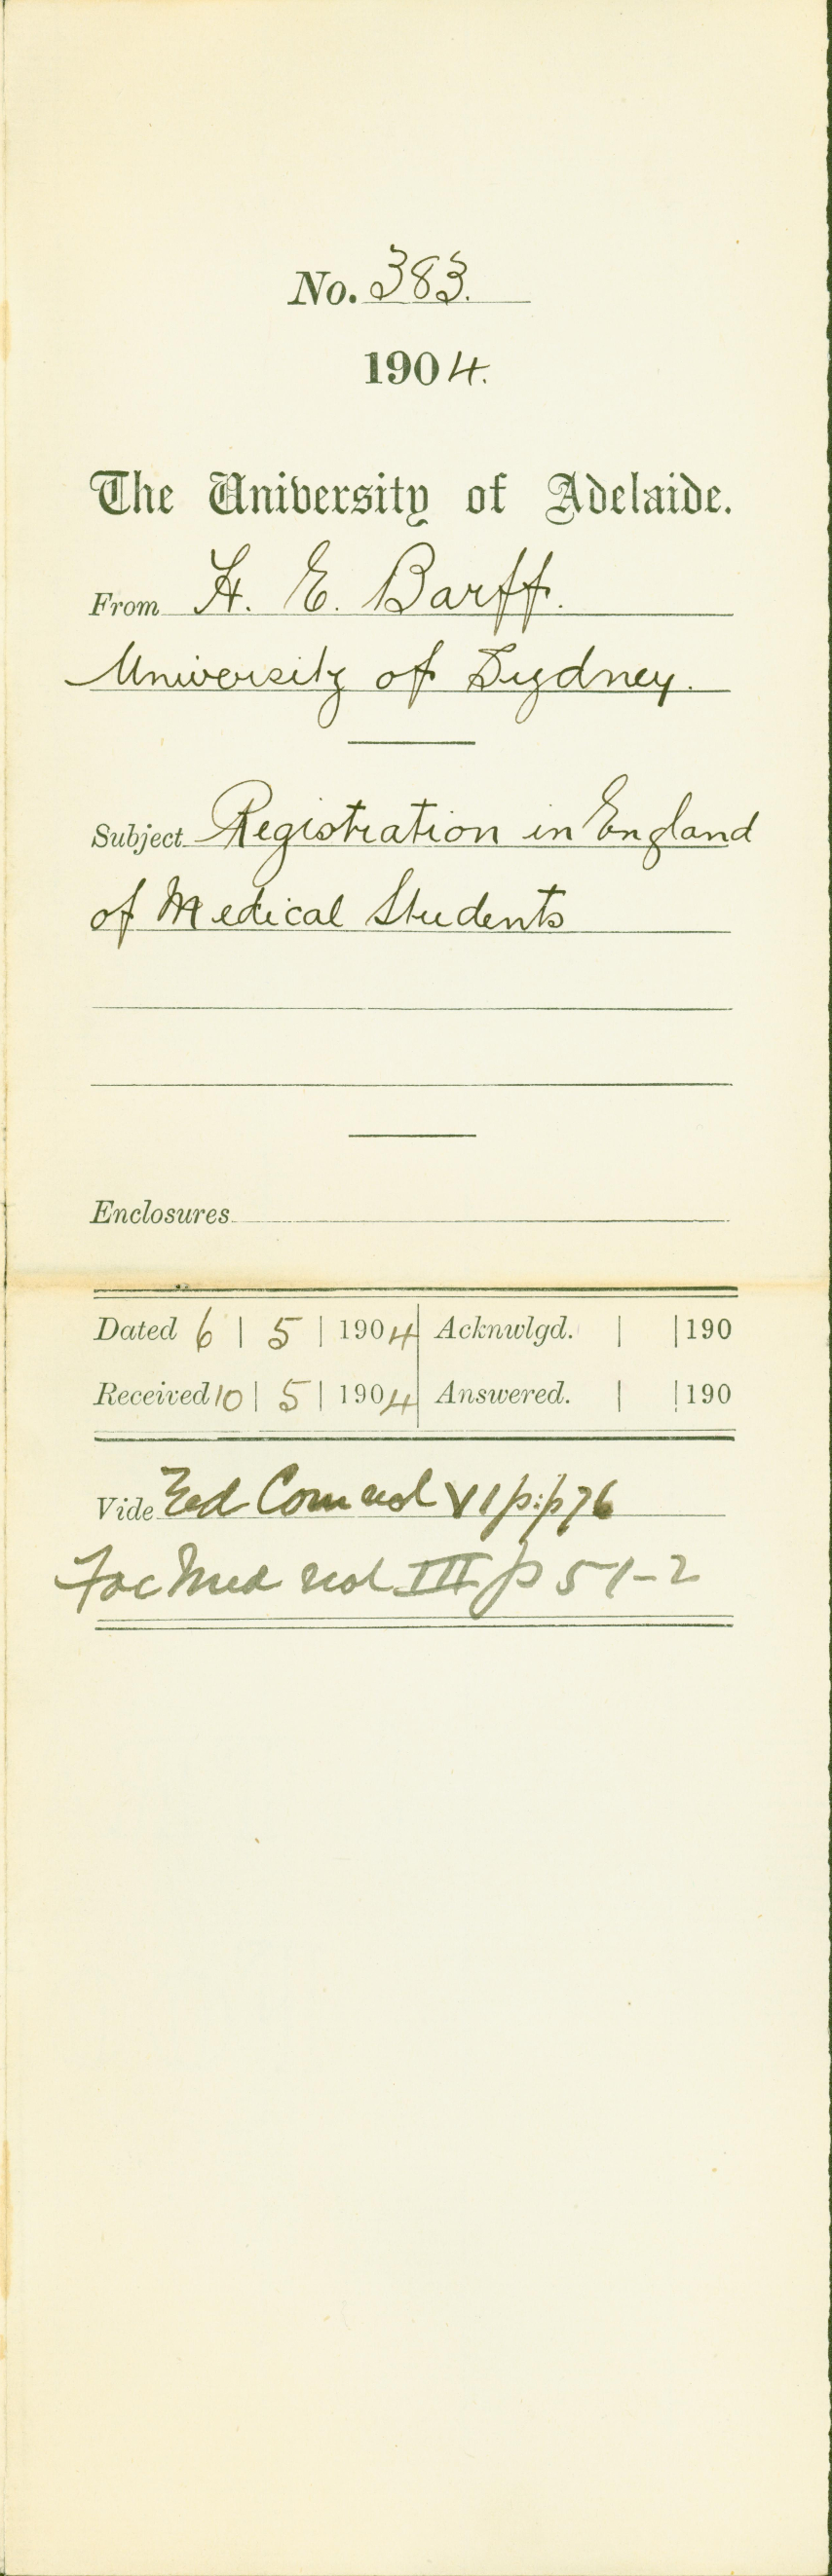 No. 383.
1904.
The University of Adelaide.
From H. E. Barff.
University of Sydney.
Subject Registration in England
of Medical Students
Enclosures
Dated 6 | 5 | 1904 Acknwlgd. | | 190
Received 10 | 5 | 1904 Answered. | | 190
Vide Ed Com vol VI p:p 76
Fac Med vol III p 51-2